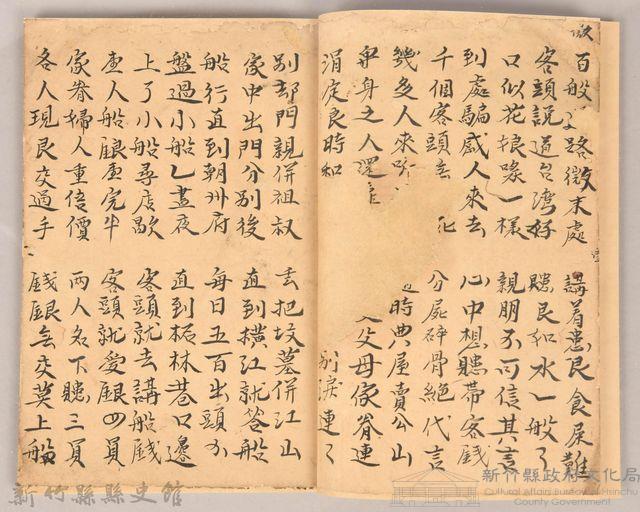 百般路微末處 講着患艮食屎難
客頭說道台湾好 賺艮如水一般了
口似花娘喙一樣 親朋不可信其言
到處騙感人來去 心中想賺帶客錢
千個客頭無化 分屍碎骨絕代言
幾多人來 時典屋賣公山
身之人還 父母家眷連
涓定良時和 別淚連了
別却門親併祖叔 去把坟墓併江山
家中出門分別後 直到橫江就答船
船行直到朝州府 每日五百出頭水
盤過小船乙晝夜 直到柘林巷口邊
上了小船尋店歇 客頭就去講船錢
壹人船銀壹完半 客頭就愛銀四員
家眷婦人重倍價 両人名下賺三員
各人現艮交過手 錢銀無交莫上船
新竹縣縣史館
新竹縣政府文化局
Cultural Affairs Bureau of Hsinchu
County Government